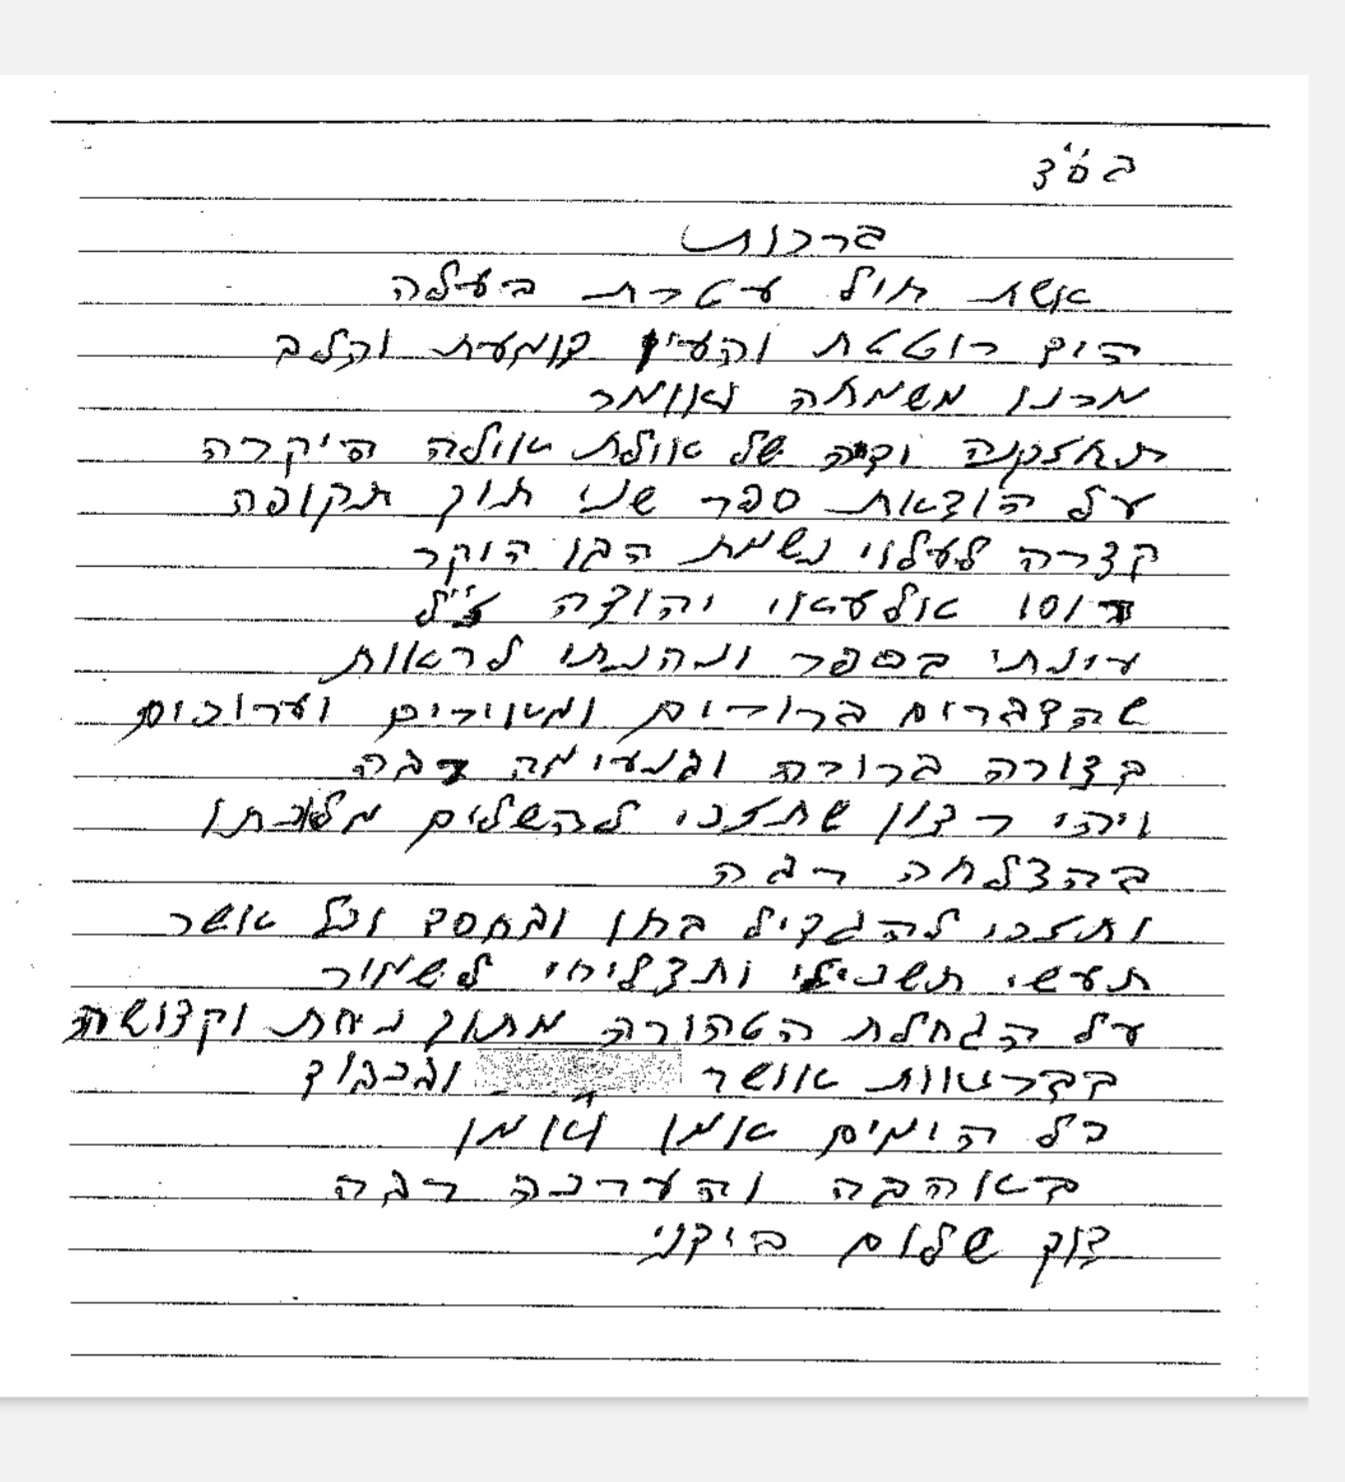 בס"ד
ברכות
אשת חיל עטרת בעלה
היד רוטטת והעין דומעת והלב
מרנן משמחה ואומר
תחזקנה ידיה של אילת אילה היקרה
על הוצאת ספר שני תוך תקופה
קצרה לעלוי נשמת הבן היקר
יוסי אולעאי יהודה ז"ל
עינתי בספר ונהנתי לראות
שהדברים ברורים ומאוירים וערוכים
בצורה ברורה ובנעימה רבה
ויהי רצון שתזכי להשלים מלאכתו
בהצלחה רבה
ותזכי להגדיל בחן ובחסד וכל אשר
תעשי תשכילי ותצליחי לשמור
על הגחלת הטהורה מתוך נחת וקדושה
בבריאות אושר ובכבוד
כל הימים אמן ואמן
באהבה והערכה רבה
דוד שלום ביקני